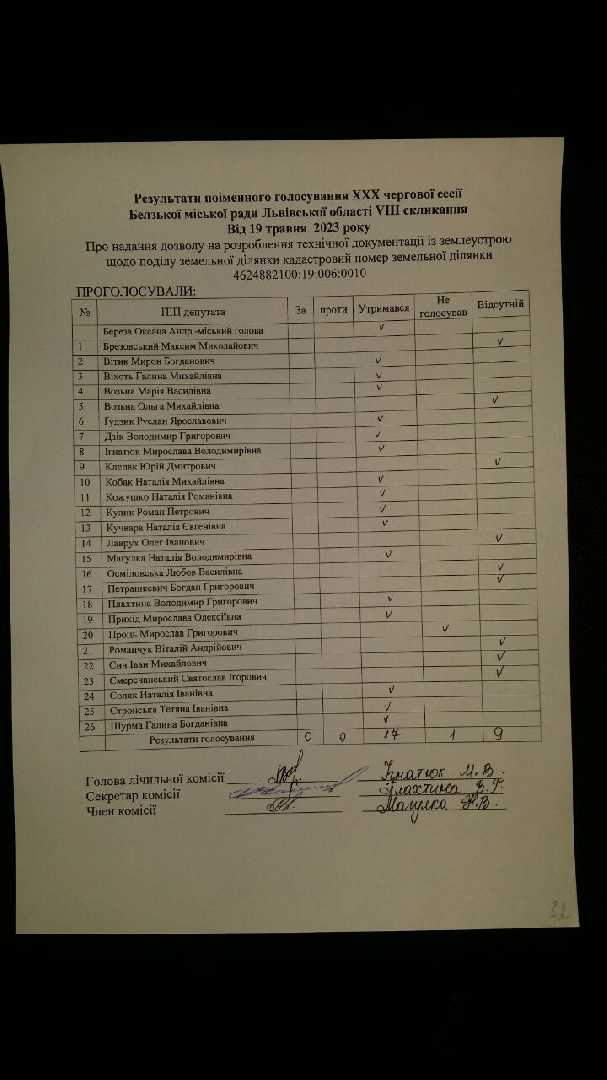 Результати поіменного голосування XXX чергової сесії
Белзької міської ради Львівської області VIII скликання
Від 19 травня 2023 року
Про надання дозволу на розроблення технічної документації із землеустрою
щодо поділу земельної ділянки кадастровий номер земельної ділянки
4624882100:19:006:0010
ПРОГОЛОСУВАЛИ:
№ ПІП депутата За проти Утримався Не голосував Відсутній
Береза Оксана Андр.-міський голова V
1 Брезовський Максим Миколайович V
2 Вітик Мирон Богданович V
3 Віхоть Галина Михайлівна V
4 Волина Марія Василівна V
5 Ольга Михайлівна V
6 Гудзик Руслан Ярославович V
7 Дзів Володимир Григорович V
8 Ігнатюк Мирослава Володимирівна V
9 Юрій Дмитрович V
10 Кобак Наталія Михайлівна V
11 Кожушко Наталія Романівна V
12 Кулик Роман Петрович V
13 Кучвара Наталія Євгенівна V
14 Лаврух Олег Іванович V
15 Магулка Наталія Володимирівна V
16 Осміловська Любов Василівна V
17 Петрашкевич Богдан Григорович V
18 Плахтина Володимир Григорович V
19 Прихід Мирослава Олексіївна V
20 Проць Мирослав Григорович V
21 Романчук Віталій Андрійович V
22 Сич Іван Михайлович V
23 Смеречанський Святослав Ігорович V
24 Соляк Наталія Іванівна V
25 Стронська Тетяна Іванівна V
26 Шурма Галина Богданівна V
Результати голосування 0 0 17 1 9
Голова лічильної комісії Ігнатюк М.В.
Секретар комісії Плахтина В.Г.
Член комісії Магулка Н.В.
32